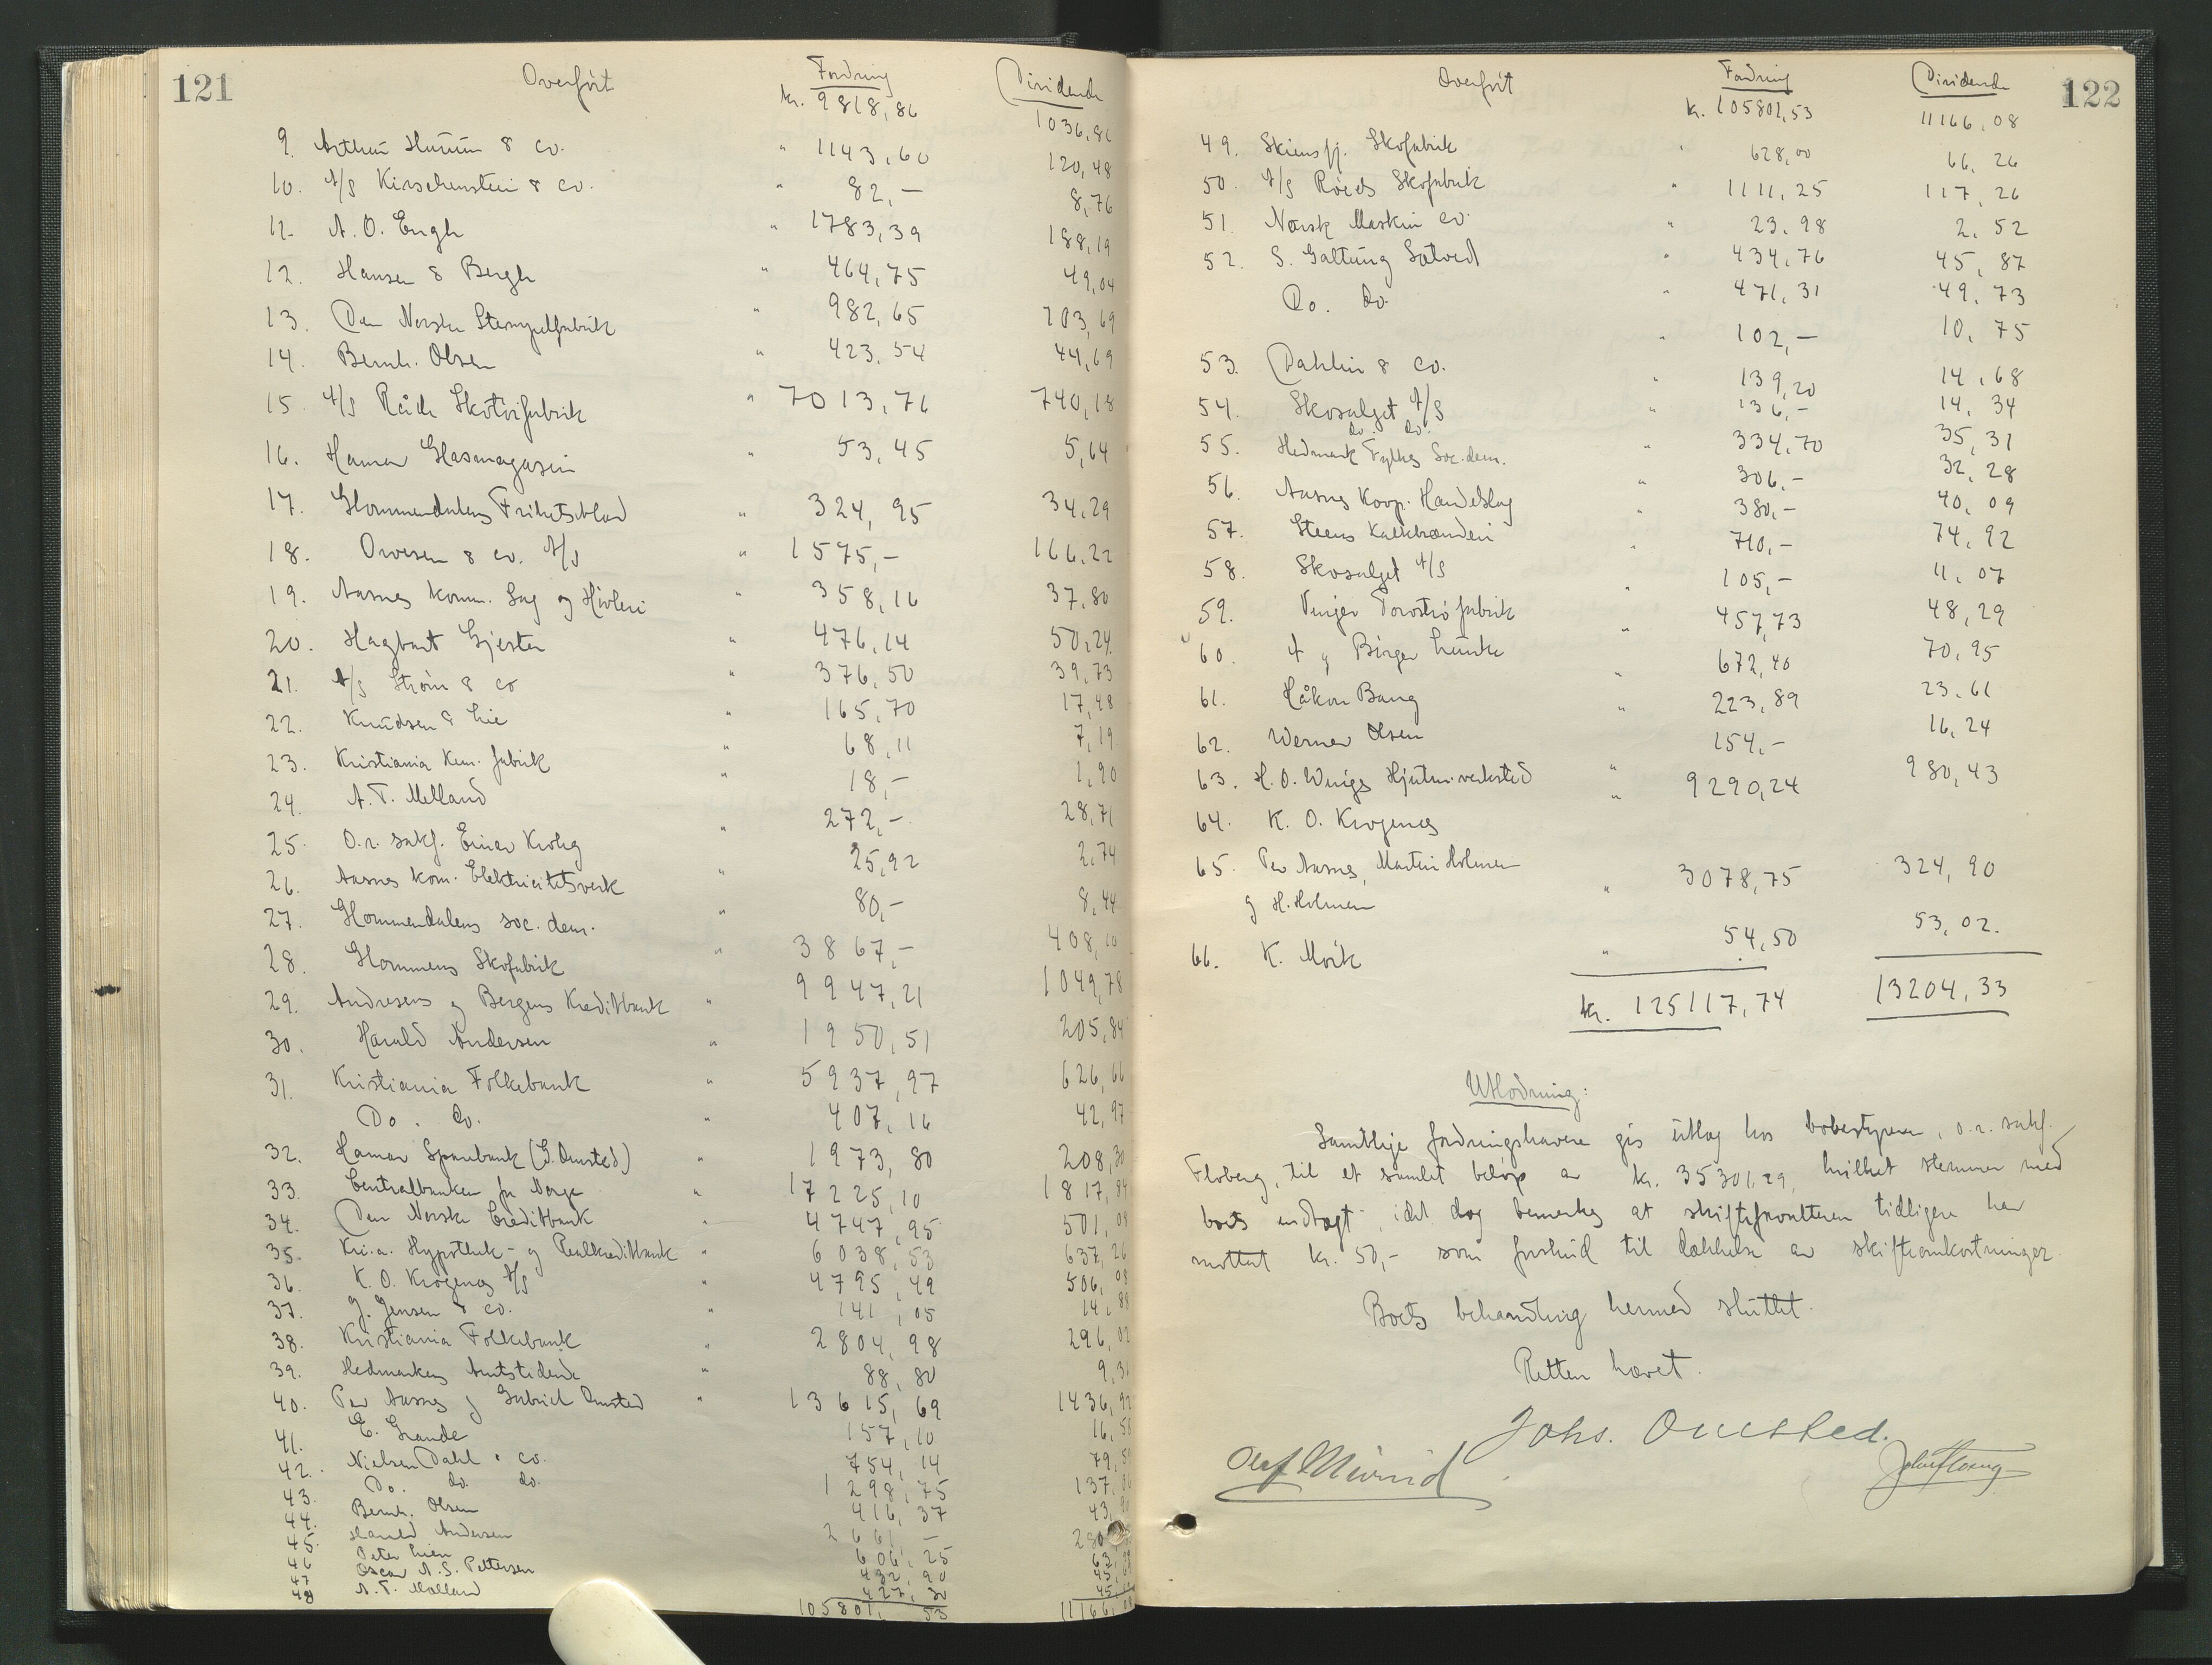 121
Overført Fordring Dividende
kr. 9818,86 1036,86
9. Arthur Huuin & Co. " 1143,60 120,48
10. A/S Kirschenstein & Co. " 82,- 8,76
11. A. O. Engh " 1783,39 188,19
12. Hansen & Bergh " 464,75 49,04
13. Den Norske Stempelfabrik " 982,65 103,69
14. Bernh. Olsen " 423,54 44,69
15. A/S Råde Skotøifabrik " 7013,76 740,18
16. Hamar Glasmagasin " 53,45 5,64
17. Glommendalens Frihetsblad " 324,95 34,29
18. Orvesen & Co. A/S " 1575,- 166,22
19. Aasnes komm. Sag og Høvleri " 358,16 37,80
20. Hagbart Gjester " 476,14 50,24
21. A/S Strøm & Co " 376,50 39,73
22. Knudsen & Lie " 165,70 17,48
23. Kristiania Kem. fabrik " 68,11 7,19
24. A. T. Melland " 18,- 1,90
25. O.r. sakf. Einar Krohg " 272,- 28,71
26. Aasnes kom. Elektricitetsverk " 25,92 2,74
27. Glommendalens soc. dem. " 80,- 8,44
28. Glommens Skofabrik " 3867,- 408,10
29. Andresens og Bergens Kreditbank " 9947,21 1049,78
30. Harald Andersen " 1950,51 205,84
31. Kristiania Folkebank " 5937,97 626,66
Do. Do. " 407,16 42,97
32. Hamar Sparebank (G. Onsted) " 1973,80 208,30
33. Centralbanken for Norge " 17225,10 1817,84
34. Den Norske Creditbank " 4747,95 501,08
35. Kr.a. Hypothek- og Realkreditbank " 6038,53 637,26
36. K. O. Krogenes A/S " 4795,49 506,08
37. J. Jensen & Co. " 141,05 14,88
38. Kristiania Folkebank " 2804,98 296,02
39. Hedmarkens Amtstidende " 88,80 9,36
40. Per Aasnes og Gabriel Onsted " 13615,69 1436,92
41. E. Grande 157,10 16,58
42. Nielsen Dahl & Co. 754,14 79,59
Do. do. do. 1298,75 137,06
43. Bernh. Olsen 416,37 43,90
44. Harald Andersen 2661,- 280
45. Peter Lien 606,25 63
46 Oscar A. S. Pettersen 432,90 45
47
48 A. T. Melland 427,30 45
105801,53 11166,08
122
Overført Fordring Dividende
kr. 105801,53 11166,08
49. Skiensfj. Skofabrik " 628,00 66,26
50. A/S Røeds Skofabrik " 1111,25 117,26
51. Norsk Maskin Co. " 23,98 2,52
52. S. Galtung Satved " 434,76 45,87
Do. do. " 471,31 49,73
" 102,- 10,75
53. Dahlin & Co. " 139,20 14,68
54. Skosalget A/S " 136,- 14,34
do. do.
55. Hedmark Fylkes Soc.dem. " 334,70 35,31
56. Aasnes Koop. Handelslag " 306,- 32,28
" 380,- 40,09
57. Steens Kalkbrænderi " 710,- 74,92
58. Skosalget A/S " 105,- 11,07
59. Vinger Torvstrøfabrik " 457,73 48,29
60. A. Birger Lunke " 672,40 70,95
61. Håkon Bang " 223,89 23,61
62. Werner Olsen " 154,- 16,24
63. H. O. Wuigs Hjulm.verksted " 9290,24 980,43
64. K. O. Krogenes
65. Per Aasnes, Martin Holmen
og H. Holmen " 3078,75 324,90
66. K. Moik " 54,50 53,02.
kr. 125117,74 13204,33
Utlodning:
Samtlige fordringshavere gis utlæg hos bobestyreren, o.r. sakf.
Floberg, til et samlet beløp av kr. 35301,29, hvilket stemmer med
boets indtægt, idet dog bemerkes at skifteforvalteren tidligere har
mottat kr. 50,- som forskud til dækkelse av skifteomkostninger.
Boets behandling hermed sluttet.
Retten hævet.
Johs. Onsted.